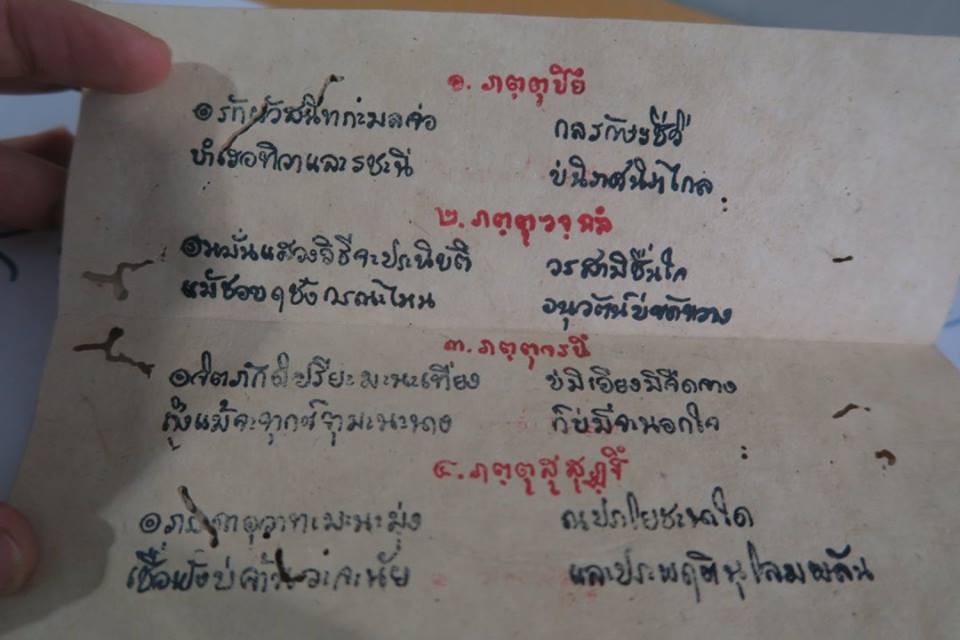 ๑. ภตฺตุปิยํ
๏ รักผัวสนิทกะมลจ่อ กลรักษะชีวี
บำเรอทิวาและรชะนี บ่นิราศนิราไกล
๒. ภตฺตุ
๏ หมั่นแสวงวิธีจะประนิบัติ วรสามิชื่นใจ
แม้ชอบฤชังกรณะไหน อนุวัตน์บ่ขัดขวาง
๓. ภตฺตุกรณี
๏ จิตภักดิปริยะมะนะเที่ยง บ่มิเอียงมิจืดจาง
ถึงแม้จะทุกข์ทุมะนะหมอง ก็บ่มีจะนอกใจ
๔. ภตฺตุสุสฺสุ
๏ โอวาทะมะนะมุ่ง ณประโยชะนาใด
เชื่อฟังบ่ นัย และประพฤติ